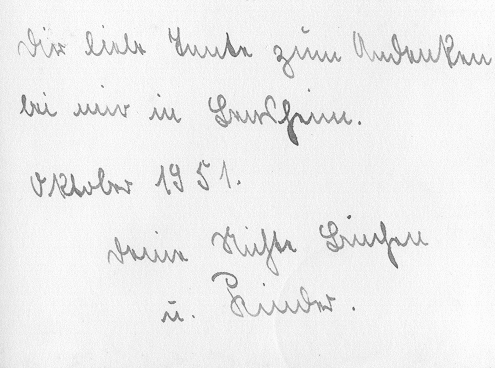 Dir liebe Tante zum Andenken
bei mir in
Oktober 1951.
Deine Nichte Linchen
u. Kinder.